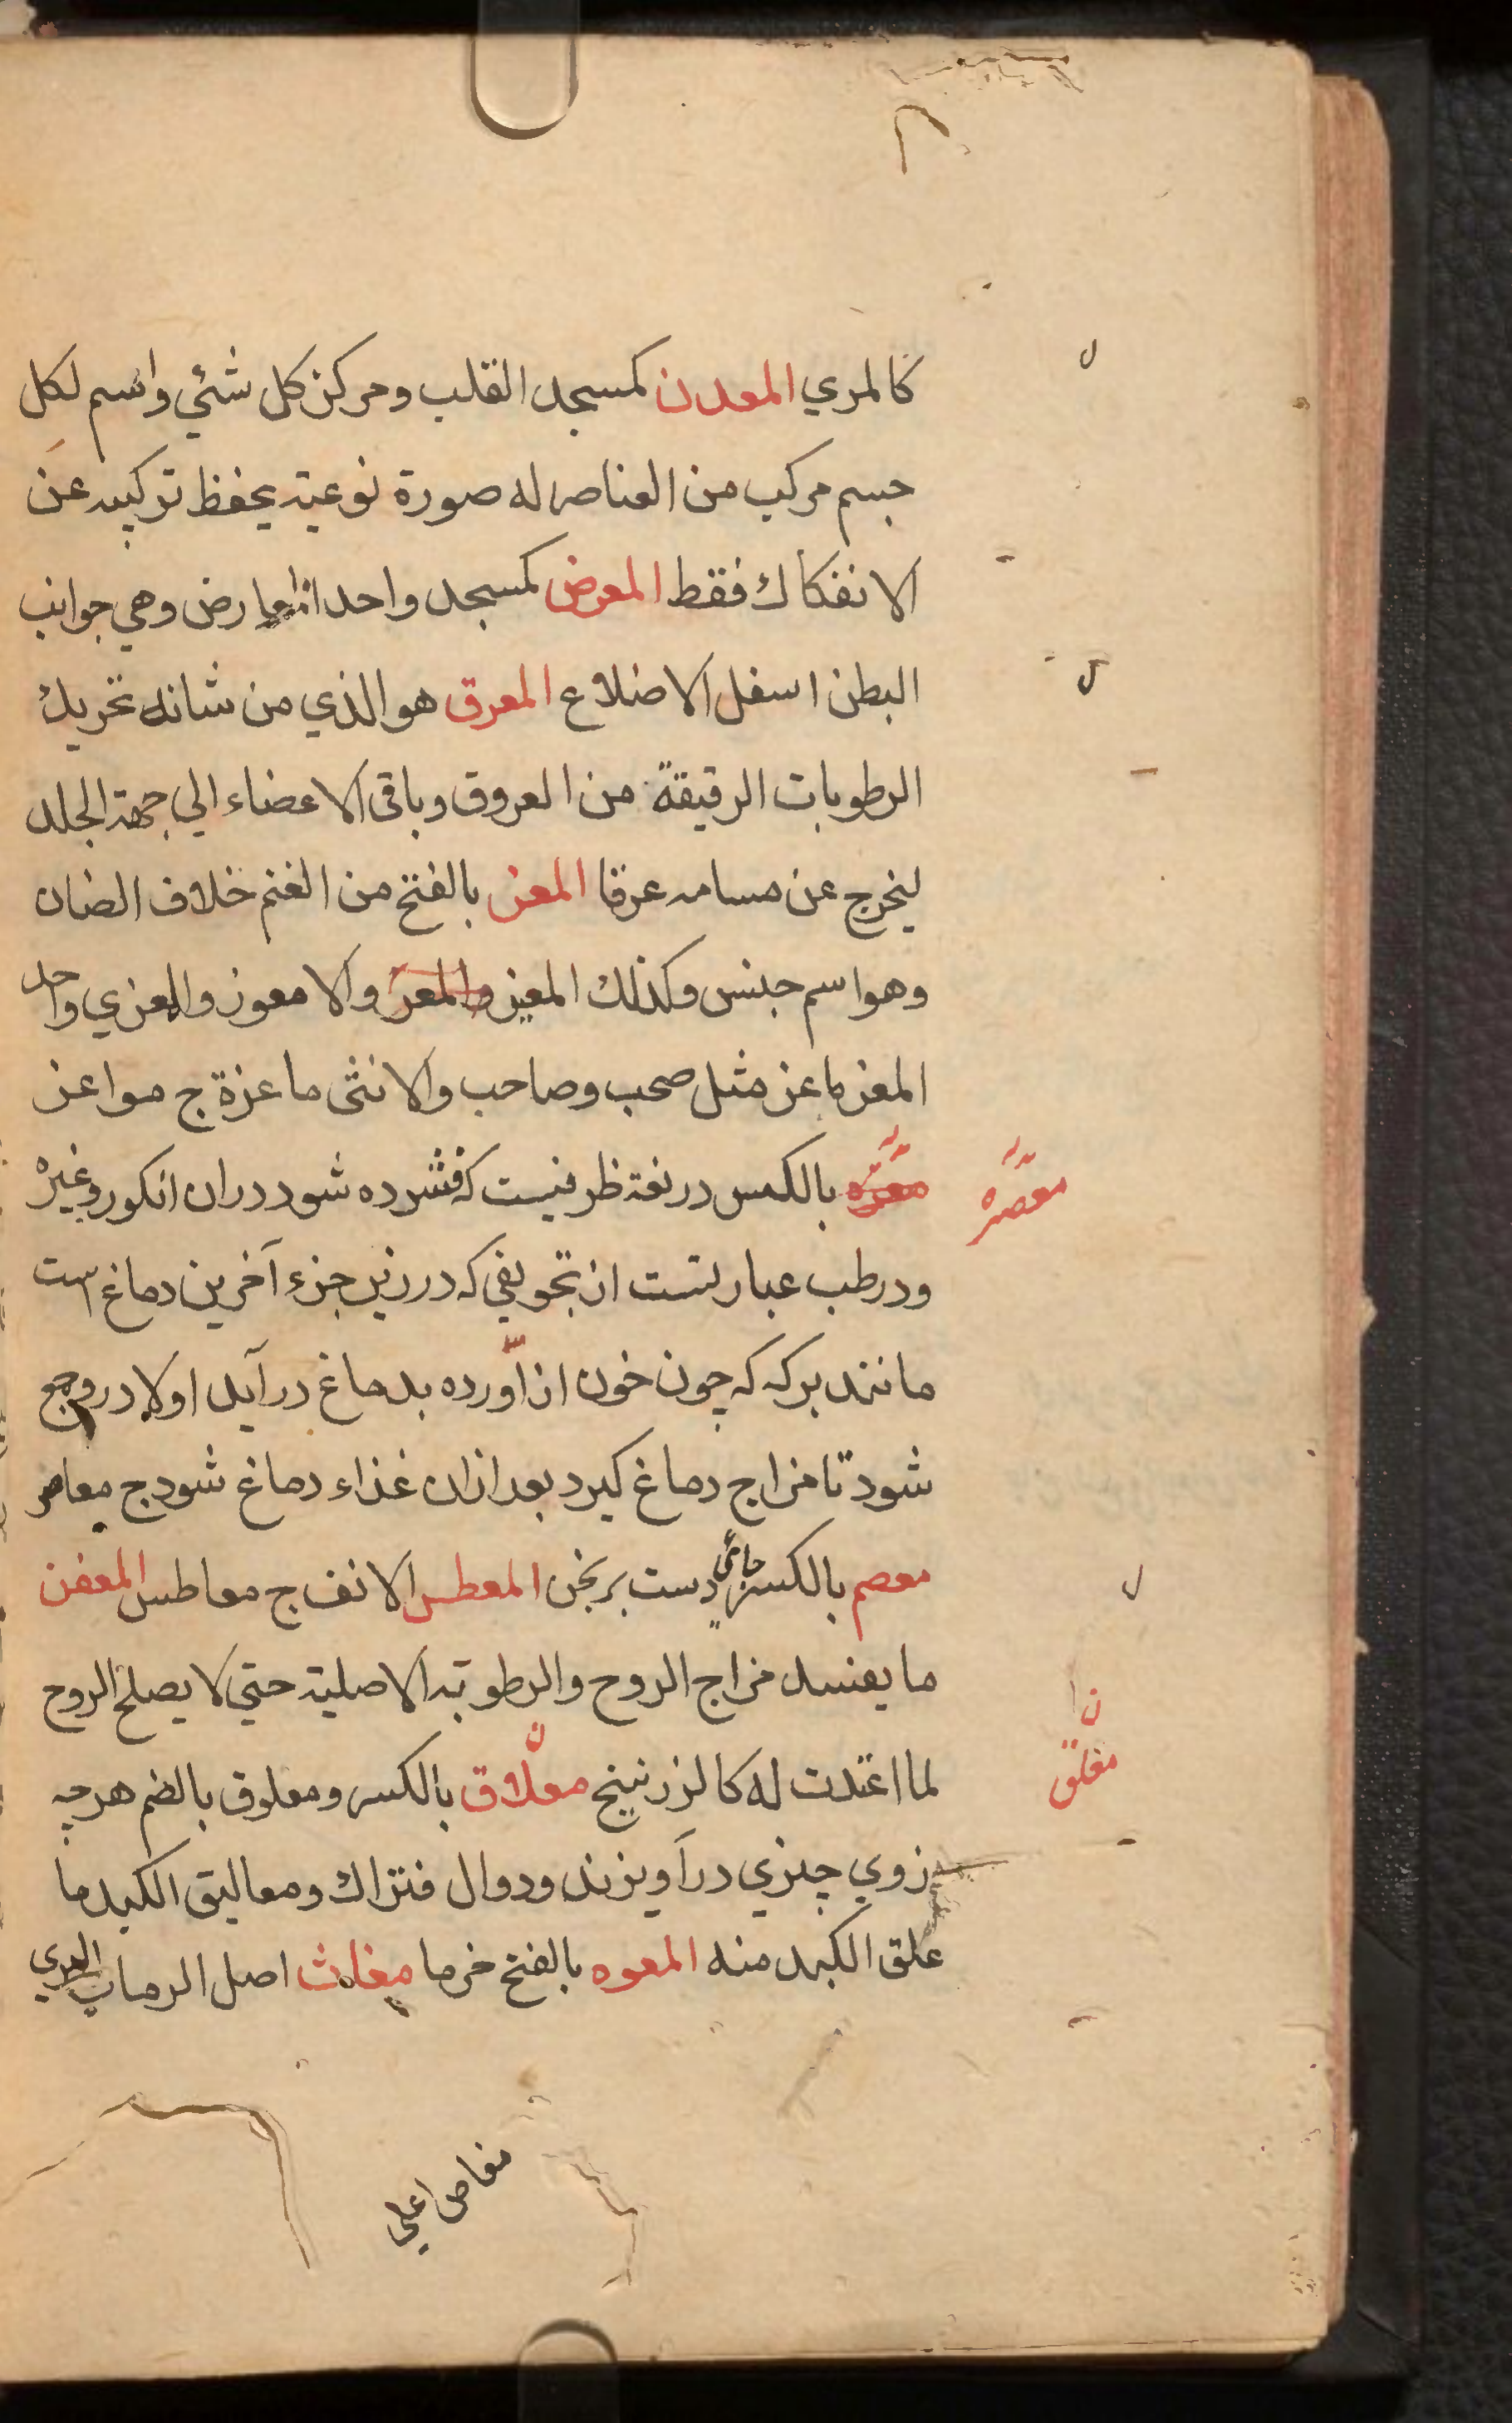 كالمري المعدن كمسجد القلب ومركز كل شئي واسم لكل
جسم مركب من العناصر له صورة نوعية يحفظ تركيبه عن
الانفكاك فقط المعرض كمسجد واحد المعارض وهي جوانب
البطن اسفل الاضلاع المعرق هو الذي من شانه تحريك
الرطوبات الرقيقة من العروق وباقى الاعضاء الي جهة الجلد
ليخرج عن مسامه عرقا المعز بالفتح من الغنم خلاف الضان
وهو اسم جنس وكذلك المعيز والمعز والامعوز والمعزي واحد
المعز ماعز مثل صحب وصاحب والانثى ماعزة ج مواعز
معصره بالكسر در لغة ظرفيست كه فشرده شود دران انكور وغيره
معصره
ودر طب عبارتست از تجويفي كه در زير جزء آخرين دماغ است
مانند بركه كه چون خون از آورده بدماغ در آيد اولا در وجمع
شود تا مزاج دماغ كيرد بعد ازان غذاء دماغ شود ج معاصر
معصم بالكسر جائي دست برنجن المعطس الانف ج معاطس المعفن
ما يفسد مزاج الروح والرطوبة الاصلية حتي لا يصلح الروح
لما اعتدت له كالزرنيخ معلاق بالكسر ومعلوق بالضم هرچه
ن
معلق
زوي چيزي در آويزند ودوال فتراك ومعاليق الكبد ما
علق الكبد منه المعوه بالفتح خرما مغاث اصل الرمان البري
مغاص اعلي